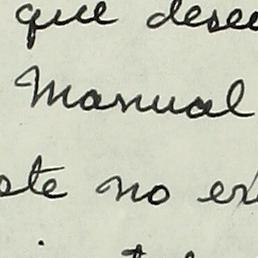 que dese
Manual
ste no ex